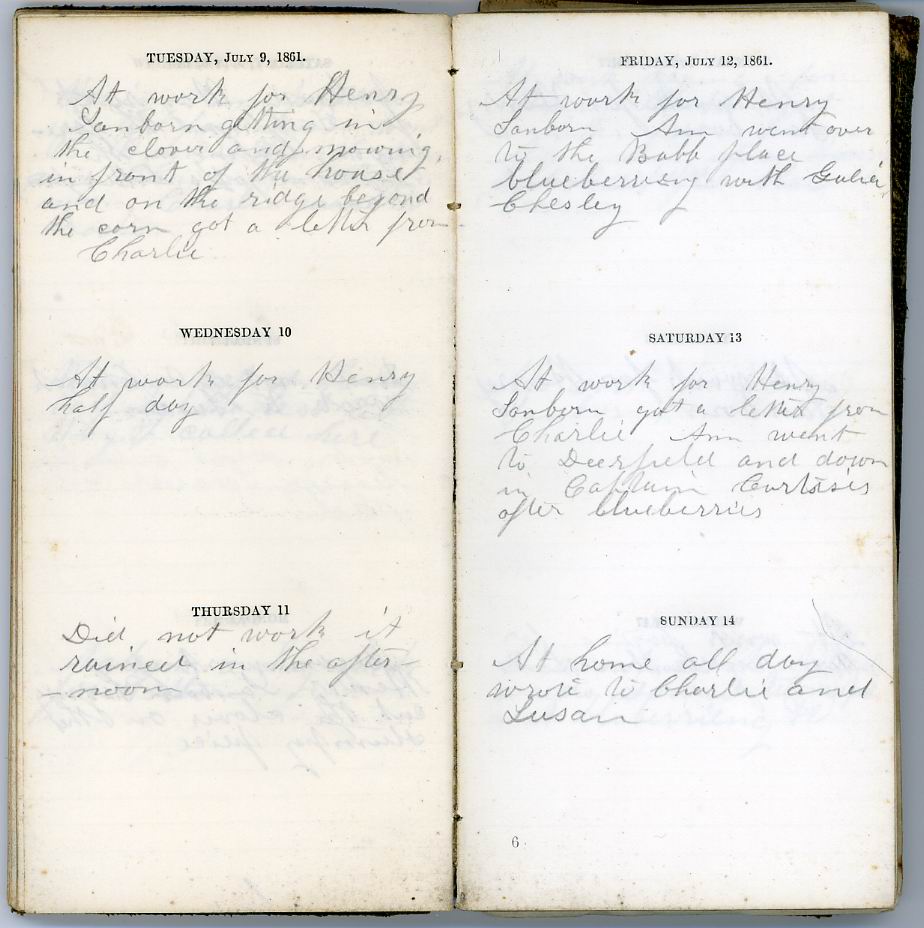 TUESDAY, JULY 9, 1861.
At work for Henry
Sanborn getting in
the clover and mowing
in front of the house
and on the ridge beyond
the corn got a letter from
Charlie
WEDNESDAY 10
At work for Henry
half day
THURSDAY 11
Did not work it
rained in the after-
-noon
FRIDAY, JULY 12, 1861.
At work for Henry
Sanborn Ann went over
to the Babb place
blueberrying with
Chesley
SATURDAY 13
At work for Henry
Sanborn got a letter from
Charlie Ann went
to Deerfield and down
in Captain
after blueberries
SUNDAY 14
At home all day
wrote to Charlie and
Susan
6